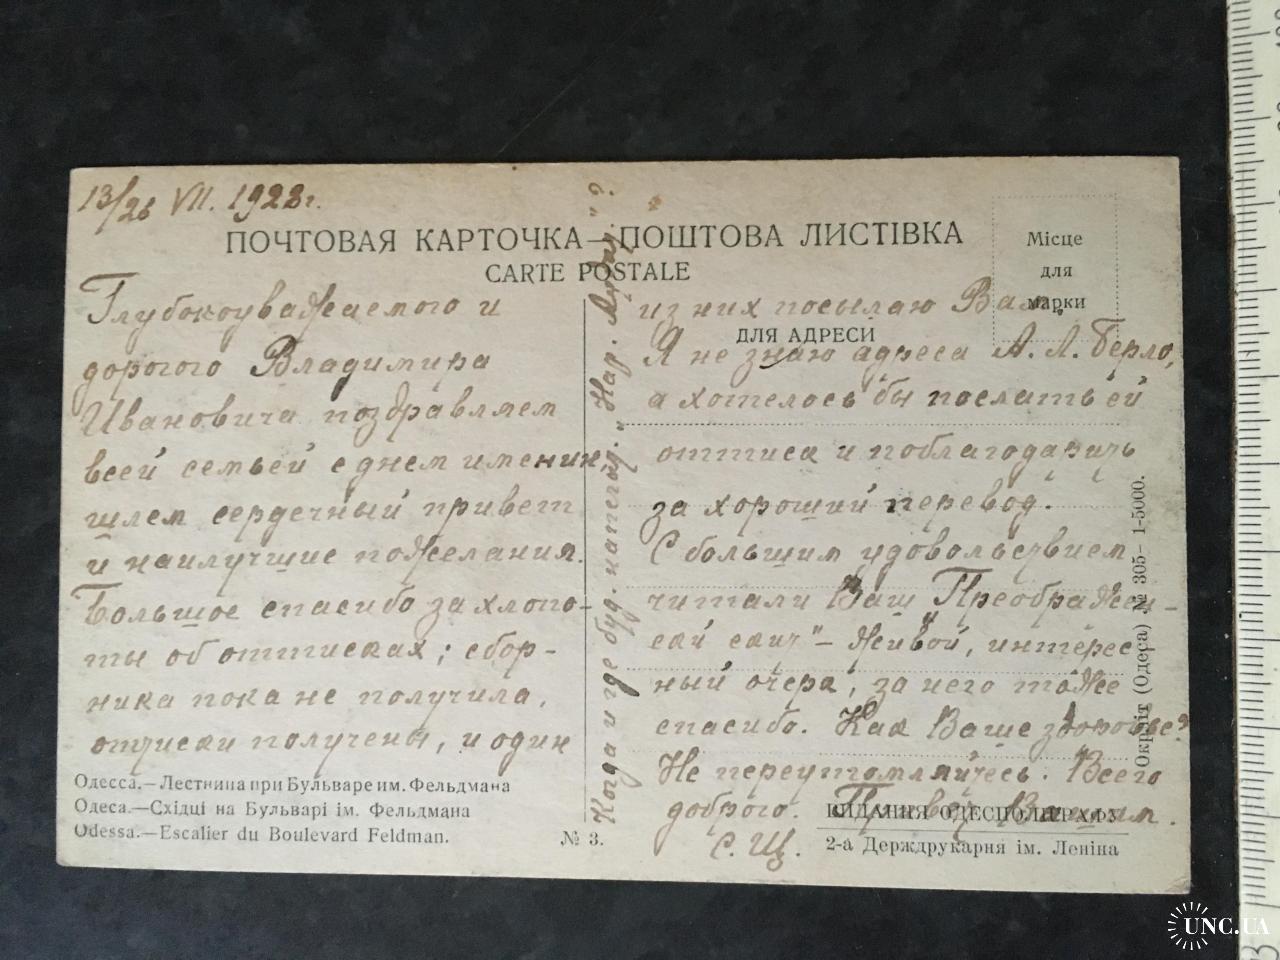 13/26 VII. 1928г.
ПОЧТОВАЯ КАРТОЧКА—ПОШТОВА ЛИСТІВКА
CARTE POSTALE
Місце
для
марки
ДЛЯ АДРЕСИ
Глубокоуважаемого и
дорогого Владимира
Ивановича поздравляем
всей семьей с днем именин,
шлем сердечный привет
и наилучшие пожелания.
Большое спасибо за хлопо-
ты об оттисках; сбор-
ника пока не получила,
оттиски получены, и один
из них посылаю Вам.
Я не знаю адреса А. Л. Берло,
а хотелось бы послать ей
оттиск и поблагодарить
за хороший перевод.
С большим удовольствием
читали Ваш „Преображен-
ский скит" – живой, интерес
ный очерк, за него тоже
спасибо. Как Ваше здоровье?
Не переутомляйтесь. Всего
доброго. Привет Вашим.
С. Щ.
Когда и где буд. напеч.
Одесса.—Лестница при Бульваре им. Фельдмана
Одеса.—Східці на Бульварі ім. Фельдмана
Odessa.—Escalier du Boulevard Feldman.
№ 3.
ВИДАННЯ ОДЕСПОЛИГРАФУ
2-а Держдрукарня ім. Леніна
Окрліт (Одеса) № 305– 1-5000.
UNC.UA